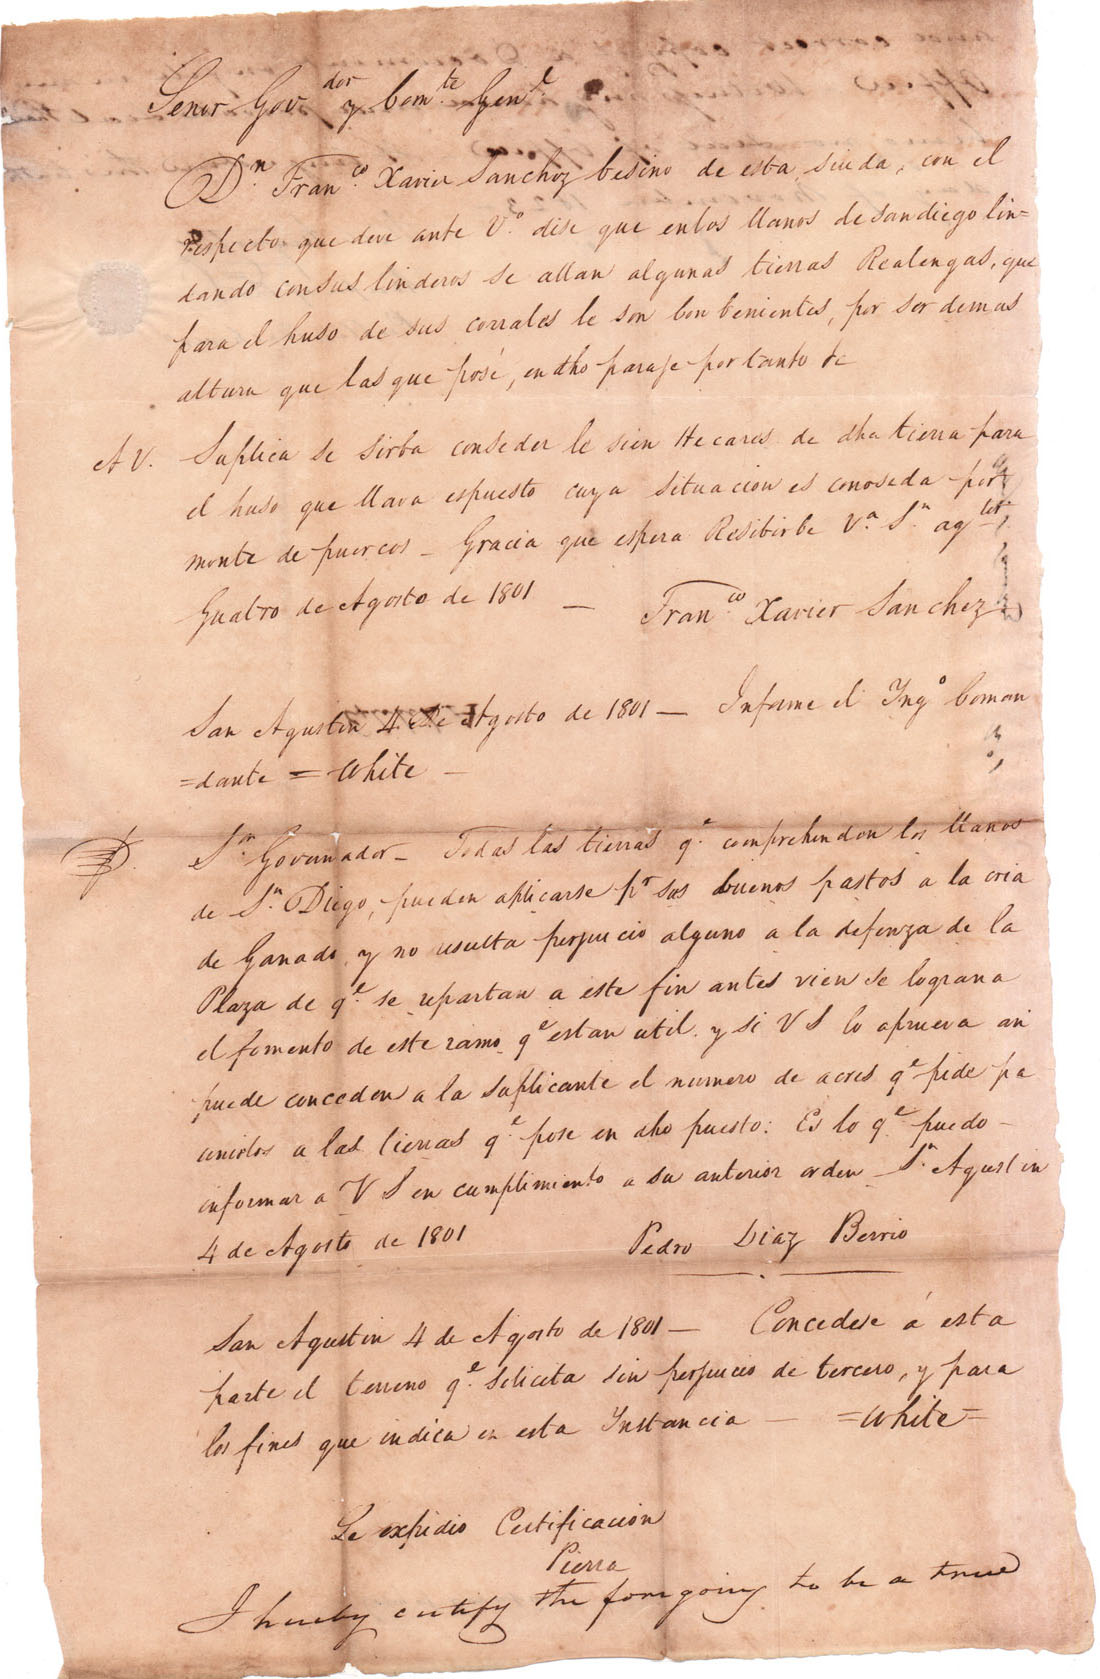 Senor Gov.dor y Com.te Gen.l
D.n Fran.co Xavier Sanchez besino de esta siuda, con el
respecto que deve ante V.o dise que enlos llanos de sandiego lin=
dando consus linderos se allan algunas tierras Realengas, que
para el huso de sus corrales le son combenientes, por ser demas
altura que las que posé, en dho paraje por tanto &c
A V. Suplica se sirba conseder le sien Hecares de dha tierra para
el huso que llava espuesto cuya situacion es conoseda por
monte de puercos - Gracia que espera Resibirbe V.a S.n ag.tin
Quatro de Agosto de 1801 — Fran.co Xavier Sanchez
San Agustin 4 De Agosto de 1801 — Informe el Ing.o Coman
=dante = White —
S.or Governador - Todas las tierras q.e comprehenden los llanos
de S.n Diego, pueden aplicarse p.r sus buenos pastos a la cria
de Ganado, y no resulta perjuicio alguno a la defenza de la
Plaza de q.e se repartan a este fin antes vien se lograra
el fomento de este ramo q.e estan util. y si V S lo aprueva asi
puede conceden a la suplicante el numero de acres q.e pide pa
unirlos a las tierras q.e pose en dho puesto: Es lo q.e puedo -
informar a V S en cumplimiento a su anterior orden S.n Agustin
4 de Agosto de 1801 Pedro Diaz Berrio
San Agustin 4 de Agosto de 1801 — Concedese á esta
parte el terreno q.e solicita sin perjuicio de tercero, y para
los fines que indica en esta Instancia — =White=
Se expidio Certificacion
Pierra
I hereby certify the foregoing to be a true